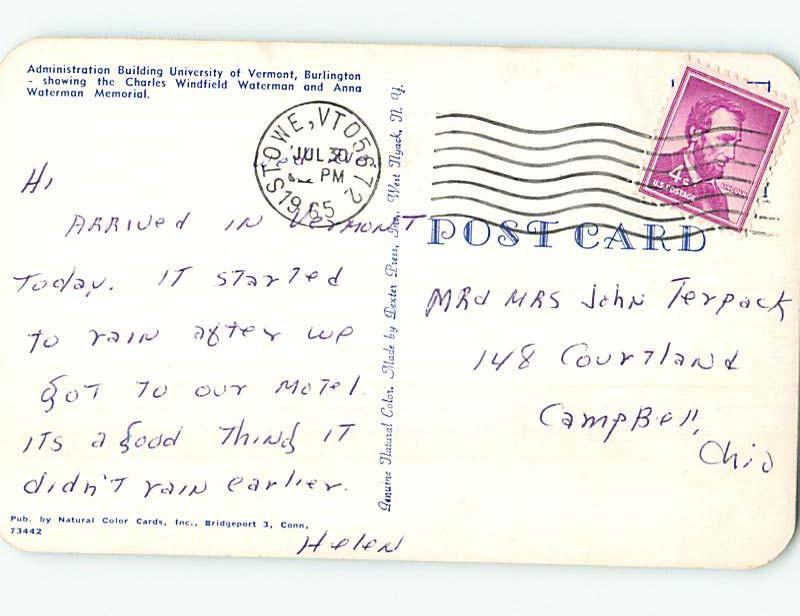 Administration Building University of Vermont, Burlington
- showing the Charles Windfield Waterman and Anna
Waterman Memorial.
STOWE, VT 05672
JUL 30
PM
1965
Hi
ARRIVED IN VERMONT
Today. IT STARTED
to rain after we
got to our motel.
ITS a good THING IT
didn't rain earlier.
Helen
Pub. by Natural Color Cards, Inc., Bridgeport 3, Conn.
73442
Genuine Natural Color. Made by Dexter Press, Inc. West Nyack, N. Y.
4c
U.S. POSTAGE
LINCOLN
POST CARD
MRd MRS John Terpack
148 Courtland
CampBell,
Ohio